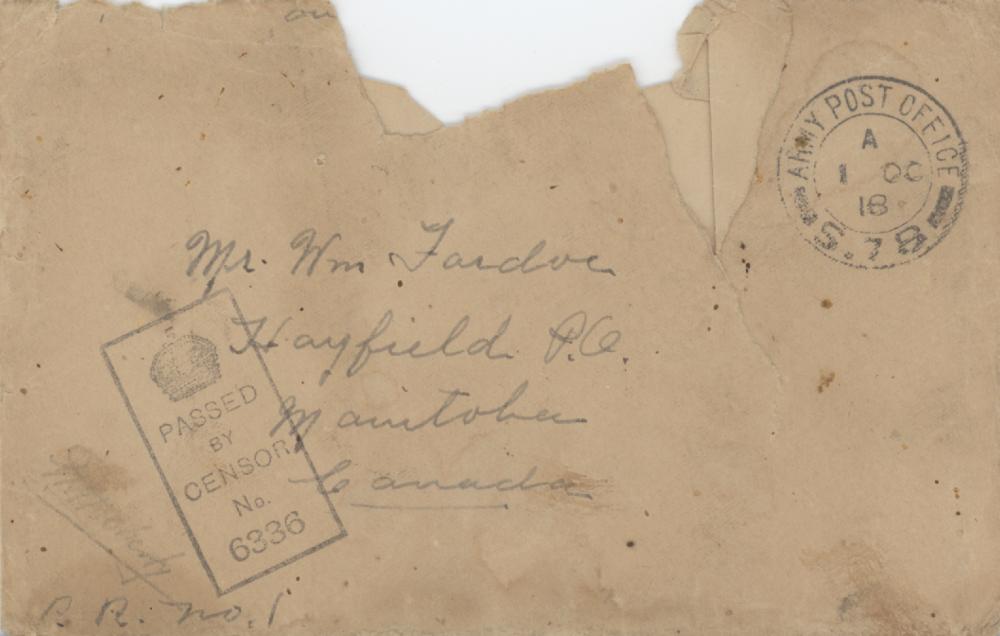 on
ARMY POST OFFICE
A
1 OC
18
S.78
Mr. Wm Fardoe
Hayfield P.O.
Manitoba
Canada
PASSED
BY
CENSOR
No.
6336
R. R. No. 1